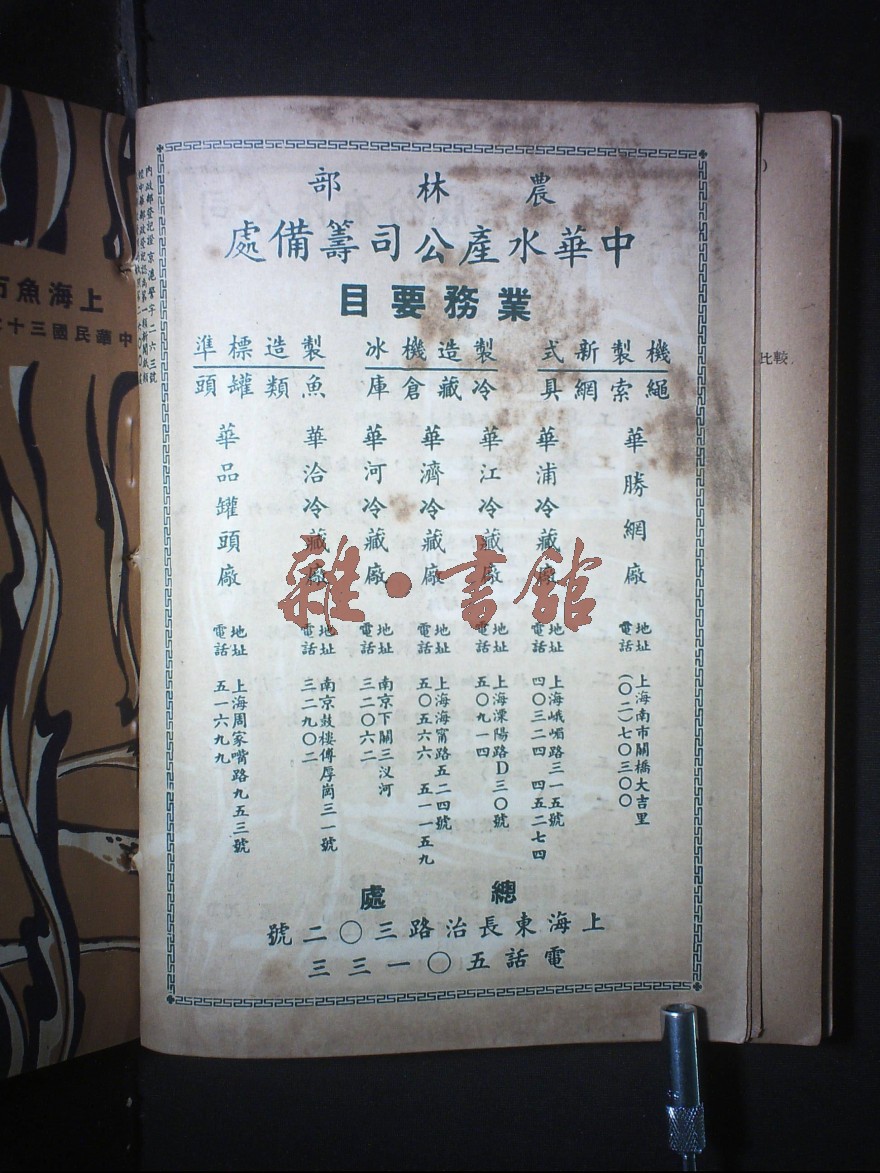 農林部
中華水產公司籌備處
業務要目
機製新式
繩索網具
製造機冰
冷藏倉庫
製造標準
魚類罐頭
華勝網廠
地址 上海南市關橋大吉里
電話 (〇二)七〇三〇〇
華浦冷藏廠
地址 上海峨嵋路三一五號
電話 四〇三二四 四五二七四
華江冷藏廠
地址 上海溧陽路D三〇號
電話 五〇九一四
華濟冷藏廠
地址 上海海甯路五二四號
電話 五〇五六六 五一一五九
華河冷藏廠
地址 南京下關三汊河
電話 三二〇六二
華洽冷藏廠
地址 南京鼓樓傅厚崗三一號
電話 三二九〇二
華品罐頭廠
地址 上海周家嘴路九五三號
電話 五一六九九
總處
上海東長治路三〇二號
電話五〇一三三
雜·書館
上海魚市
中華民國三十
內政部登記證京滬警字二六三號
比較